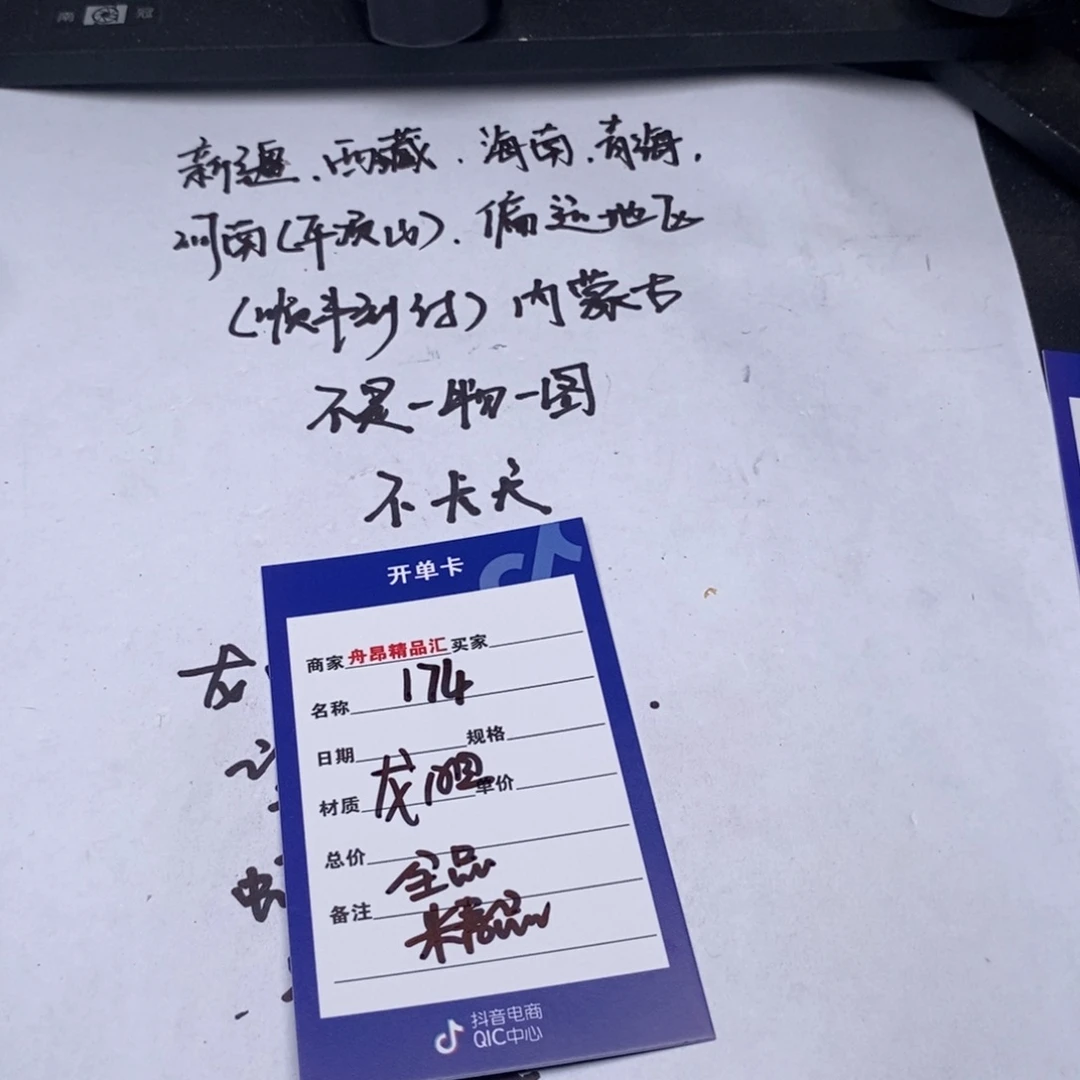 南 冠
新疆、西藏、海南、青海、
河南(平顶山)、偏远地区
(顺丰到付)内蒙古
不是一物一图
不卡尺
龙
开单卡
商家 舟昂精品汇 买家
174
名称
日期 规格
龙胆
材质 单价
总价
全品
备注
精品
抖音电商
QIC中心